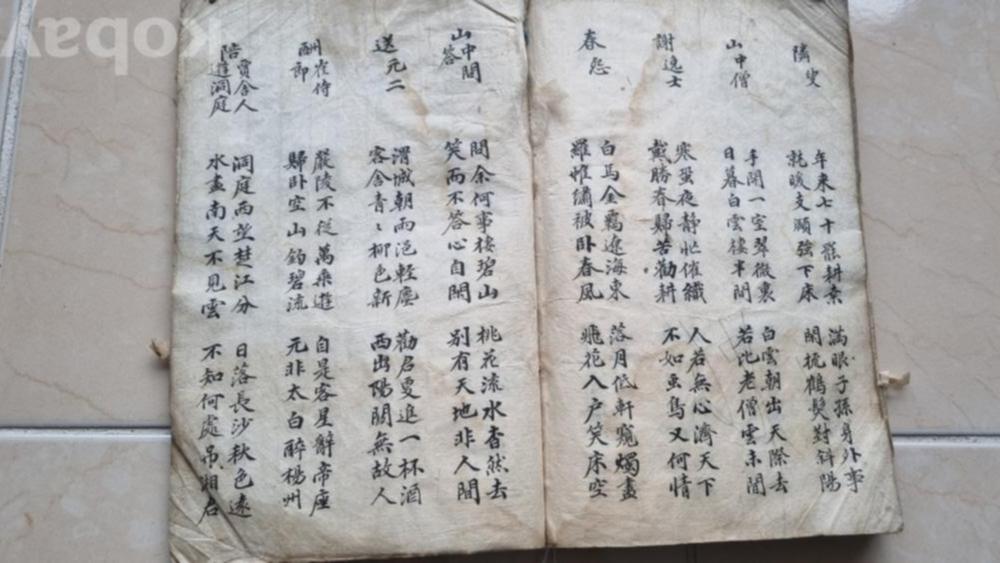 隣叟
年来七十罷耕桒
就暖支頤強下床
滿眼子孫身外事
閑梳鶴髮對斜陽
山中僧
手開一室翠微裏
日暮白雲棲半間
白雲朝出天際去
若比老僧雲未間
謝逸士
寒蛩夜靜忙催織
戴勝春歸苦勸耕
人若無心濟天下
不如虫鳥又何情
春怨
白馬金羈遼海東
羅帷繡被卧春風
落月低軒窺燭盡
飛花入戶笑床空
山中問答
問余何事棲碧山
笑而不答心自閑
桃花流水杳然去
別有天地非人間
送元二
渭城朝雨浥輕塵
客舍青〻柳色新
勸君更進一杯酒
西出陽關無故人
酬崔侍郎
嚴陵不從萬乘遊
歸卧空山釣碧流
自是客星辭帝座
元非太白醉楊州
陪賈舍人遊洞庭
洞庭西望楚江分
水盡南天不見雲
日落長沙秋色遠
不知何處吊湘君
kobay